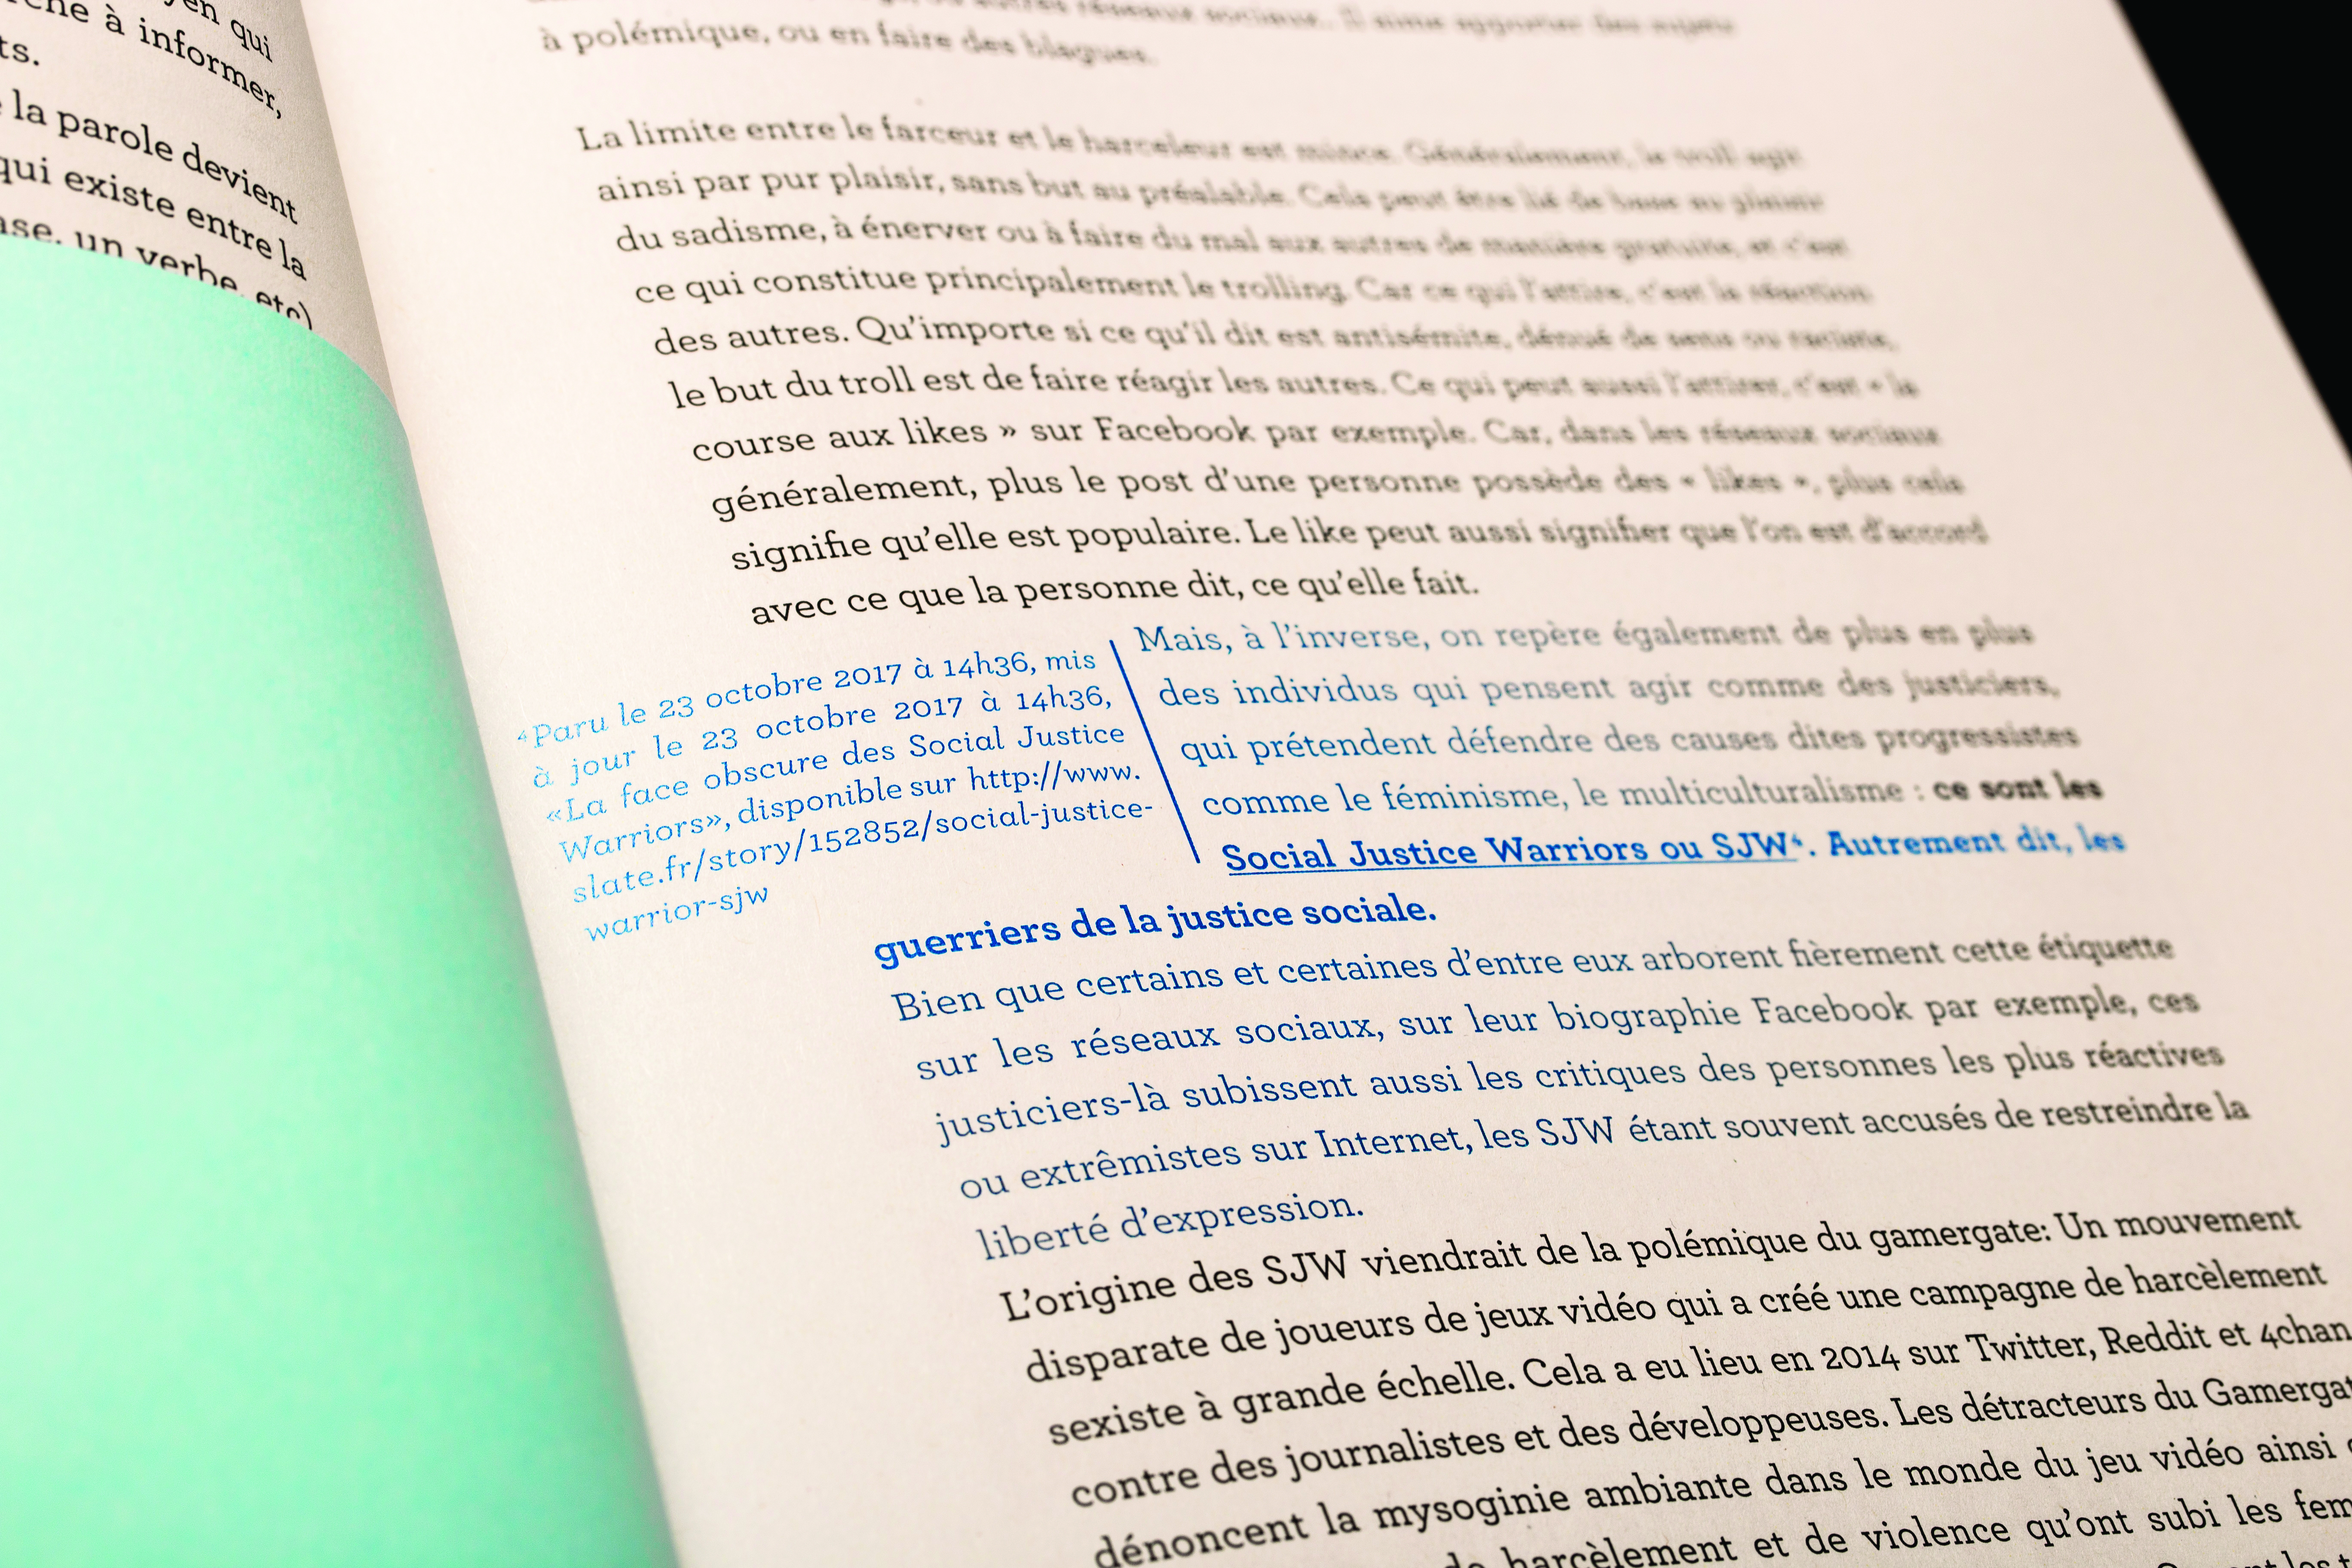 en qui
che à informer,
ts.
la parole devient
qui existe entre la
ase, un verbe, etc)
autres réseaux sociaux. Il aime apporter des sujets
à polémique, ou en faire des blagues.
La limite entre le farceur et le harceleur est mince. Généralement, le troll agit
ainsi par pur plaisir, sans but au préalable. Cela peut être lié de base au plaisir
du sadisme, à énerver ou à faire du mal aux autres de manière gratuite, et c'est
ce qui constitue principalement le trolling. Car ce qui l'attire, c'est la réaction
des autres. Qu'importe si ce qu'il dit est antisémite, dénué de sens ou raciste,
le but du troll est de faire réagir les autres. Ce qui peut aussi l'attirer, c'est « la
course aux likes » sur Facebook par exemple. Car, dans les réseaux sociaux
généralement, plus le post d'une personne possède des « likes », plus cela
signifie qu'elle est populaire. Le like peut aussi signifier que l'on est d'accord
avec ce que la personne dit, ce qu'elle fait.
⁴Paru le 23 octobre 2017 à 14h36, mis
à jour le 23 octobre 2017 à 14h36,
«La face obscure des Social Justice
Warriors», disponible sur http://www.
slate.fr/story/152852/social-justice-
warrior-sjw
Mais, à l'inverse, on repère également de plus en plus
des individus qui pensent agir comme des justiciers,
qui prétendent défendre des causes dites progressistes
comme le féminisme, le multiculturalisme : ce sont les
Social Justice Warriors ou SJW⁴. Autrement dit, les
guerriers de la justice sociale.
Bien que certains et certaines d'entre eux arborent fièrement cette étiquette
sur les réseaux sociaux, sur leur biographie Facebook par exemple, ces
justiciers-là subissent aussi les critiques des personnes les plus réactives
ou extrêmistes sur Internet, les SJW étant souvent accusés de restreindre la
liberté d'expression.
L'origine des SJW viendrait de la polémique du gamergate: Un mouvement
disparate de joueurs de jeux vidéo qui a créé une campagne de harcèlement
sexiste à grande échelle. Cela a eu lieu en 2014 sur Twitter, Reddit et 4chan
contre des journalistes et des développeuses. Les détracteurs du Gamergat
dénoncent la mysoginie ambiante dans le monde du jeu vidéo ainsi
de harcèlement et de violence qu'ont subi les fem